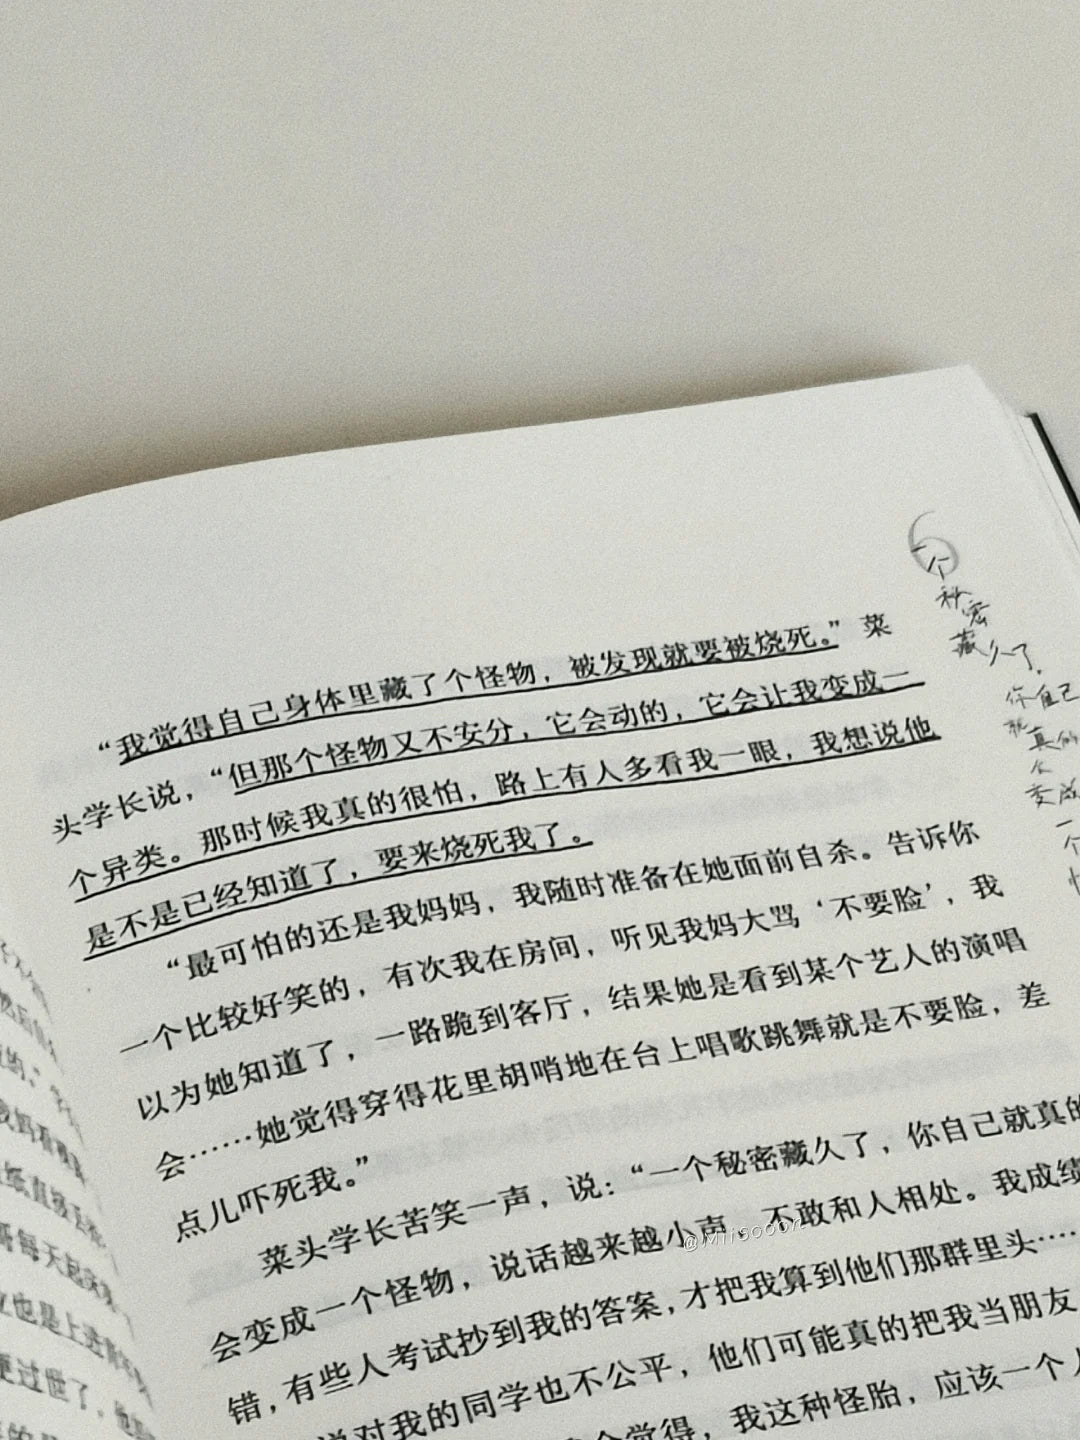 “我觉得自己身体里藏了个怪物，被发现就要被烧死。”菜
头学长说，“但那个怪物又不安分，它会动的，它会让我变成一
个异类。那时候我真的很怕，路上有人多看我一眼，我想说他
是不是已经知道了，要来烧死我了。
“最可怕的还是我妈妈，我随时准备在她面前自杀。告诉你
一个比较好笑的，有次我在房间，听见我妈大骂‘不要脸’，我
以为她知道了，一路跪到客厅，结果她是看到某个艺人的演唱
会……她觉得穿得花里胡哨地在台上唱歌跳舞就是不要脸，差
点儿吓死我。”
菜头学长苦笑一声，说：“一个秘密藏久了，你自己就真的
会变成一个怪物，说话越来越小声，不敢和人相处。我成绩
错，有些人考试抄到我的答案，才把我算到他们那群里头……
说对我的同学也不公平，他们可能真的把我当朋友
会觉得，我这种怪胎，应该一个人
一个
秘密
藏久了，
你自己
就真的
会
变成
一个
@Miisooon
我妈看
每天起
也是上
过世了，他